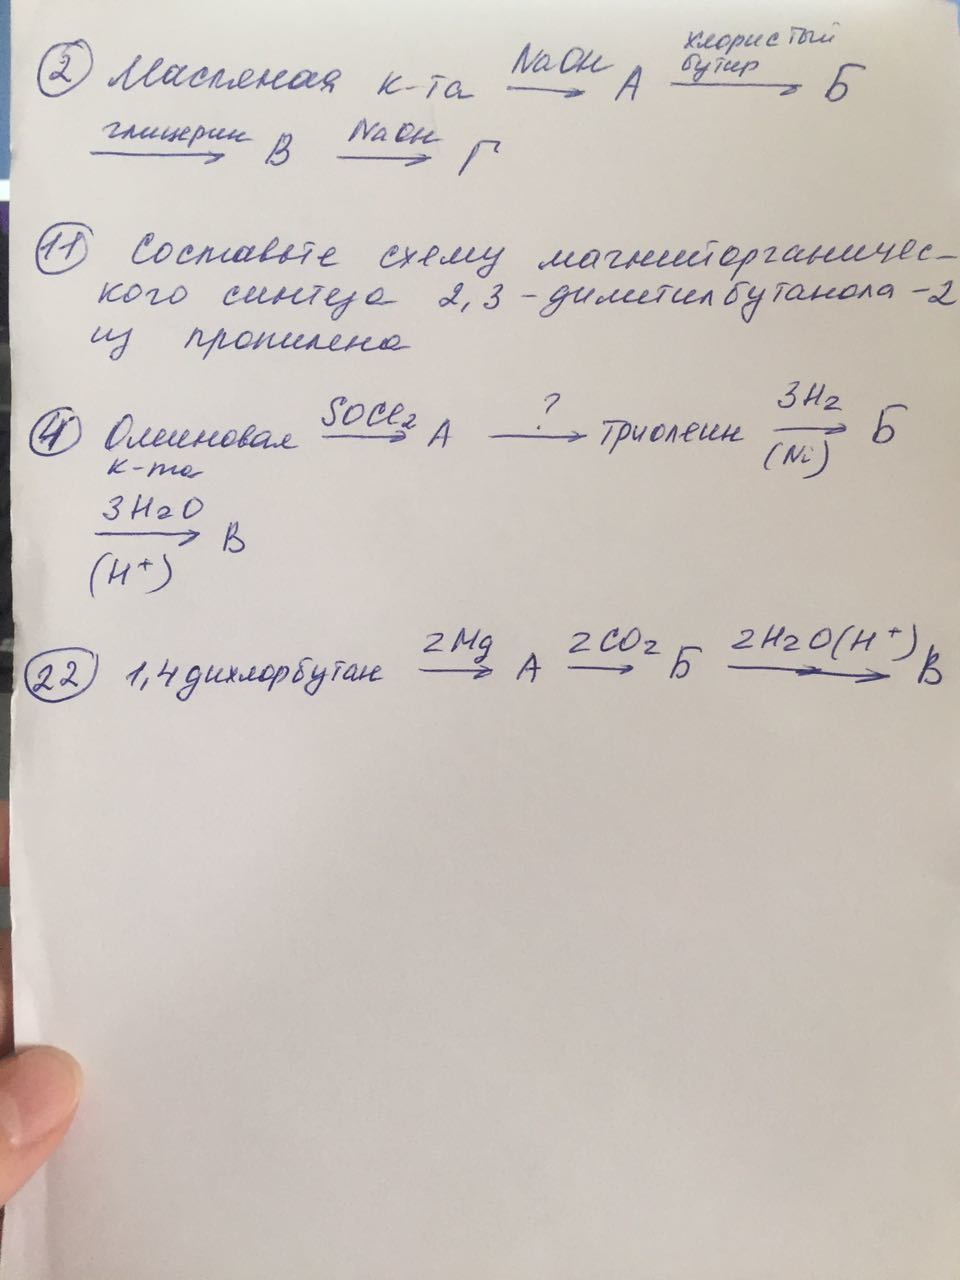 2 Масляная к-та NaOH А хлористый бутир Б
глицерин В NaOH Г
11 Составьте схему магнийорганичес-
кого синтеза 2,3-диметилбутанола-2
из пропилена
4 Олеиновая к-та SOCl2 А ? триолеин 3H2 (Ni) Б
3H2O (H+) В
22 1,4 дихлорбутан 2Mg А 2CO2 Б 2H2O(H+) В